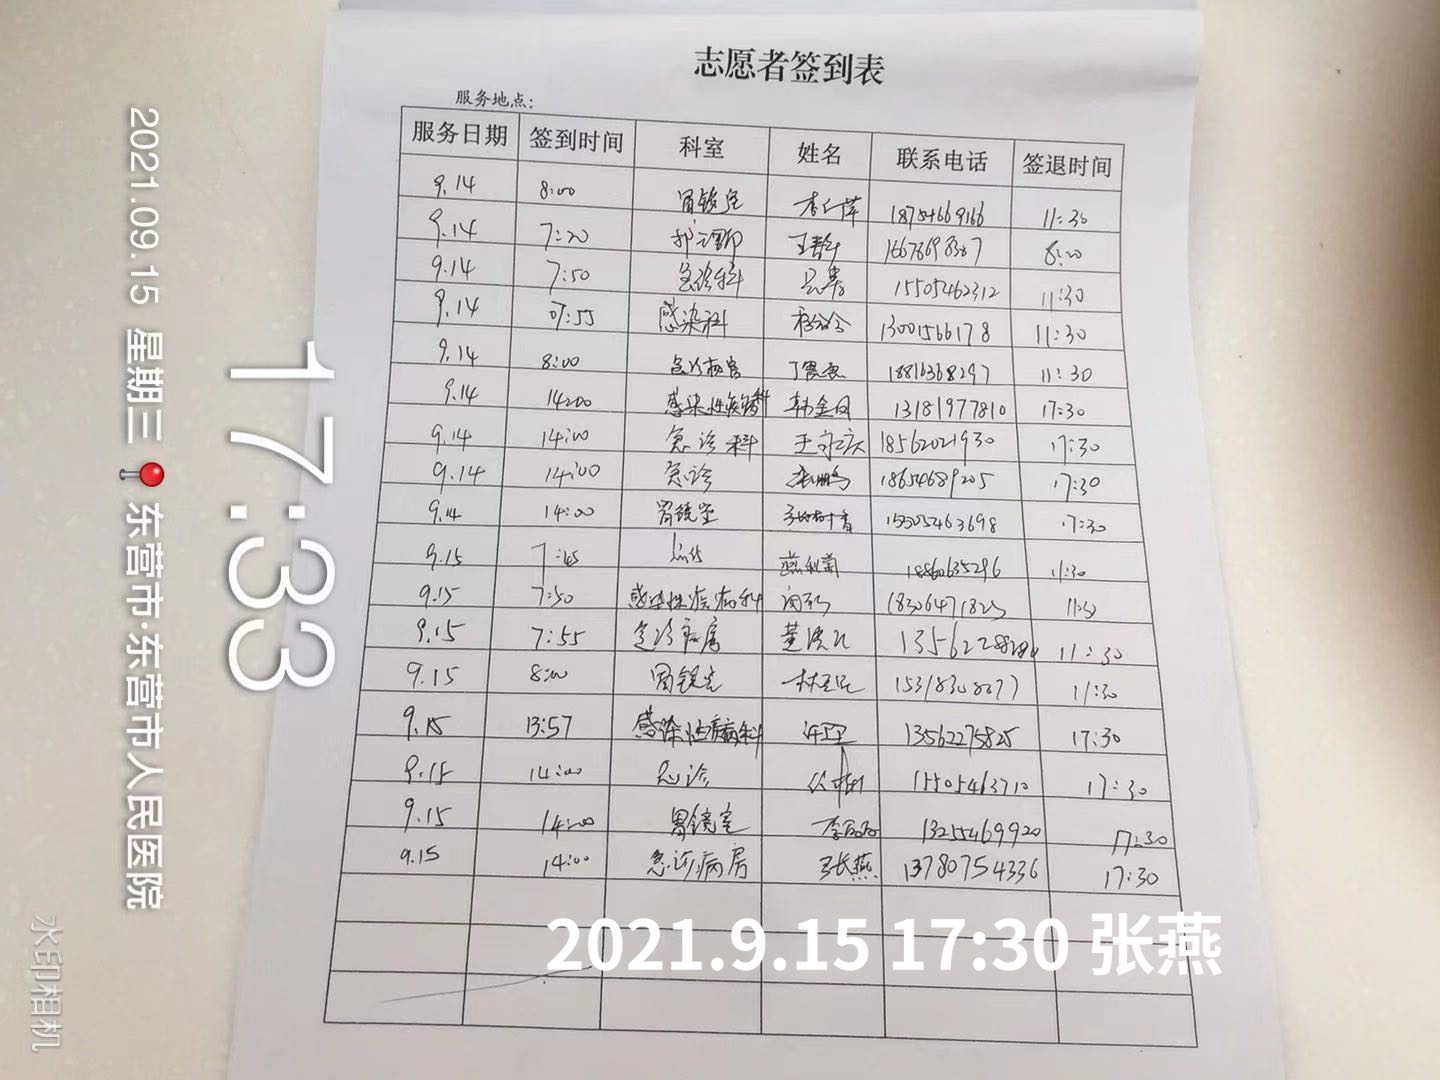 志愿者签到表
服务地点：
服务日期 签到时间 科室 姓名 联系电话 签退时间
9.14 8:00 胃镜室 18754669166 11:30
9.14 7:20 王静 8:20
9.14 7:50 急诊科 15505462312 11:30
9.14 07:55 感染科 13001566178 11:30
9.14 8:00 18816368297 11:30
9.14 14:00 感染性疾病科 韩金月 13181977810 17:30
9.14 14:00 急诊科 王守庆 18562021930 17:30
9.14 14:00 急诊 18654689205 17:30
9.14 14:00 胃镜室 15505463698 17:30
9.15 7:45 燕秋菊 18860635296 11:30
9.15 7:50 感染性疾病科 18306471825 11:30
9.15 7:55 急诊病房 11:30
9.15 8:00 胃镜室 15318308077 11:30
9.15 13:57 感染性疾病科 许卫 13562275825 17:30
9.15 14:00 急诊 15505463710 17:30
9.15 14:00 胃镜室 13255469920 17:30
9.15 14:00 急诊病房 张燕 13780754336 17:30
2021.9.15 17:30 张燕
17:33
2021.09.15 星期三 东营市·东营市人民医院
水印相机